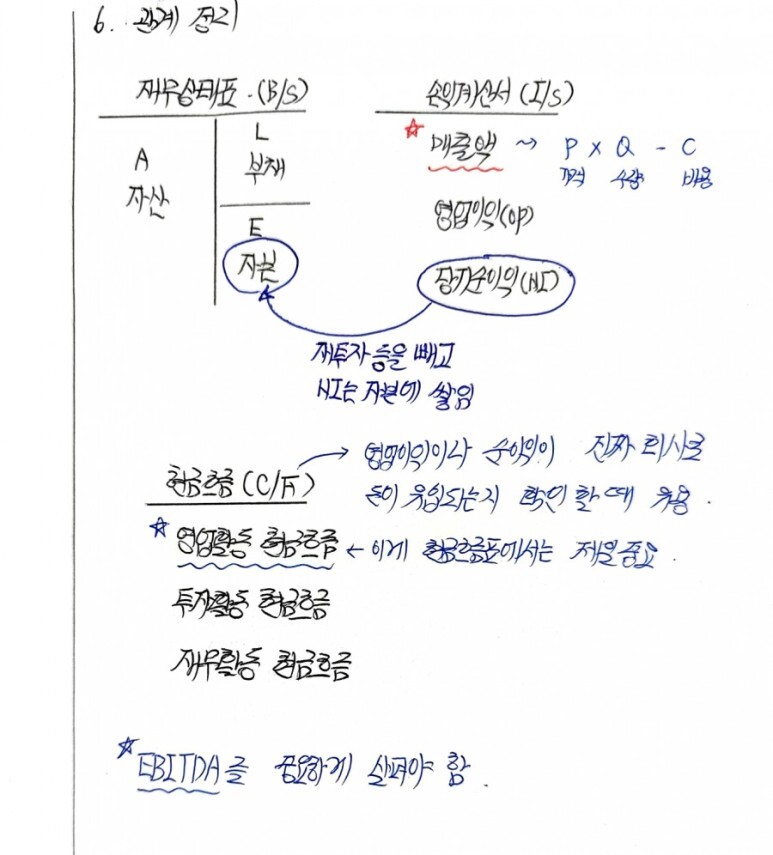 6. 관계 정리
재무상태표 - (B/S)
A
자산
L
부채
E
자본
손익계산서 (I/S)
☆ 매출액 ~> P x Q - C
가격 수량 비용
영업이익(OP)
당기순이익(NI)
재투자 등을 빼고
NI는 자본에 쌓임
현금흐름 (C/F) → 영업이익이나 순이익이 진짜 회사로
돈이 유입되는지 확인 할 때 유용.
☆ 영업활동 현금흐름 ← 이게 현금흐름표에서는 제일 중요.
투자활동 현금흐름
재무활동 현금흐름
☆ EBITDA를 중요하게 살펴야 함.